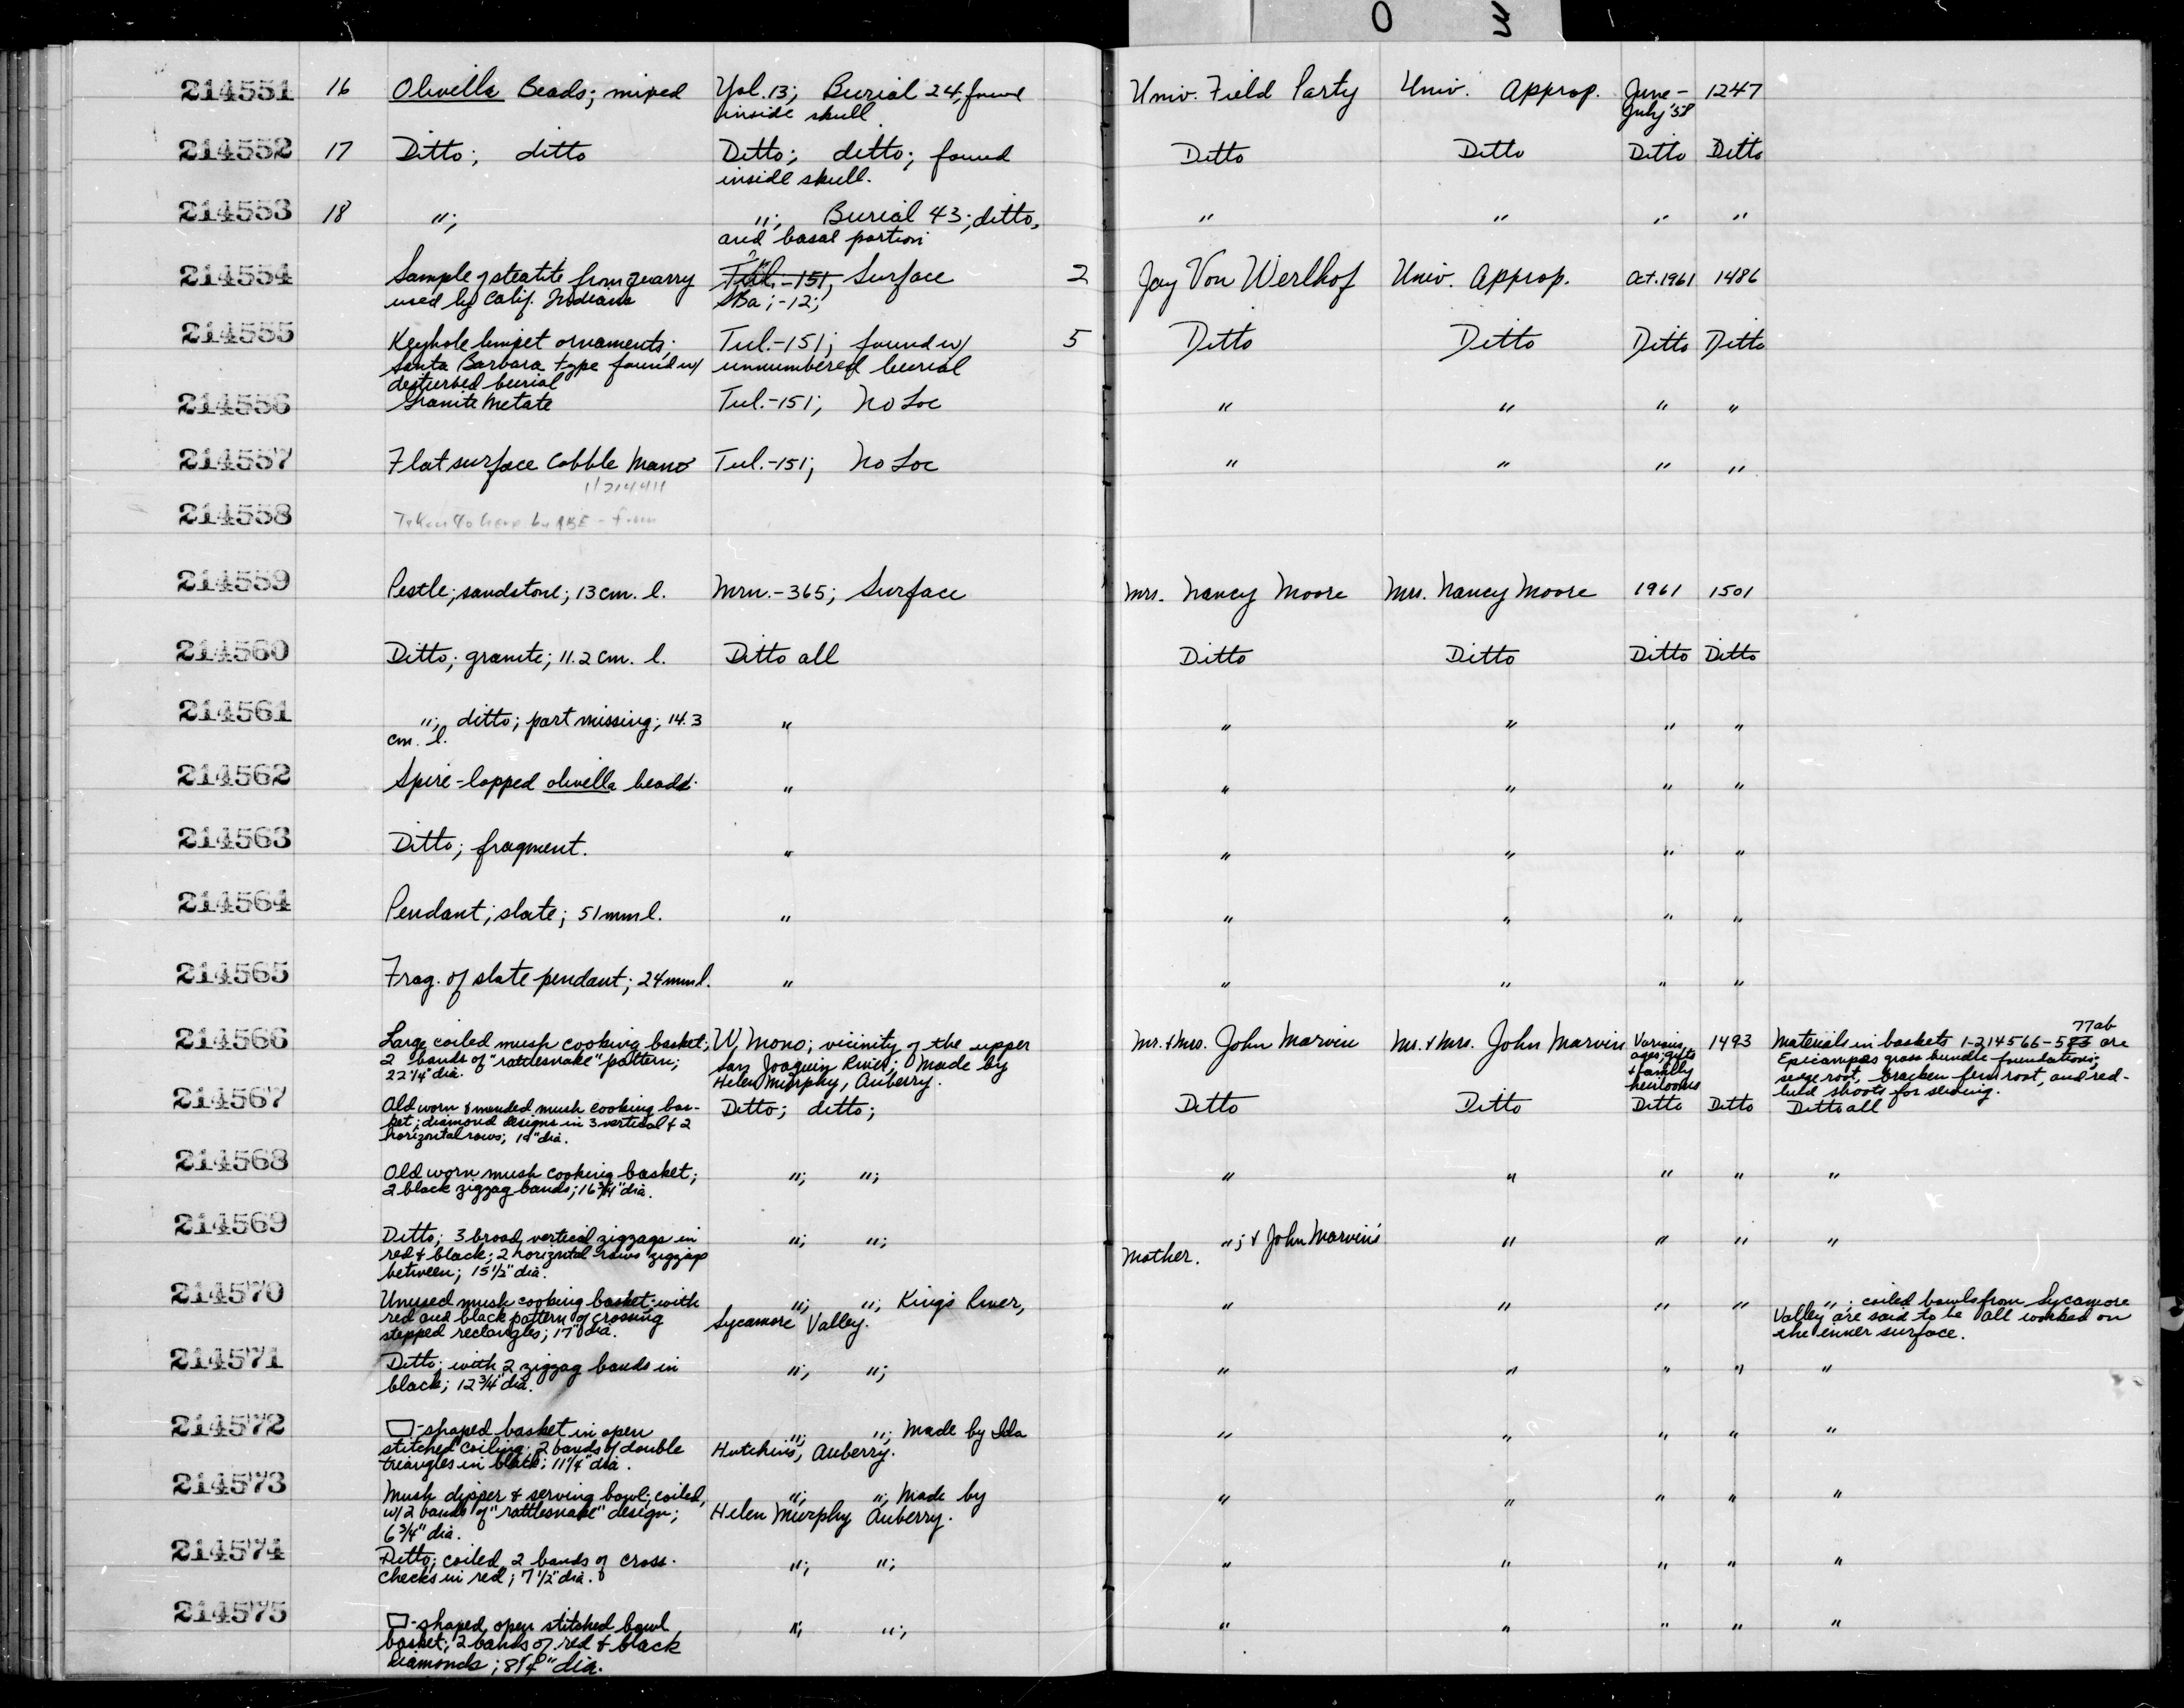 214551 16 Olivella Beads; mixed Yol. 13; Burial 24, found Univ. Field Party Univ. Approp. June- 1247
inside skull July '58
214552 17 Ditto; ditto Ditto; ditto; found Ditto Ditto Ditto Ditto
inside skull.
214553 18 "; "; Burial 43; ditto, " " " "
and basal portion
214554 Sample of steatite from quarry Tul.-151, Surface 2 Jay Von Werlhof Univ. Approp. Oct. 1961 1486
used by Calif. Indians SBa;-12;
214555 Keyhole limpet ornaments; Tul.-151; found w/ 5 Ditto Ditto Ditto Ditto
Santa Barbara type found w/ unnumbered burial
disturbed burial
214556 Granite Metate Tul.-151; No Loc " " " "
214557 Flat surface Cobble Mano Tul.-151; No Loc " " " "
214558
214559 Pestle; sandstone; 13 cm. l. Mrn.-365; Surface Mrs. Nancy Moore Mrs. Nancy Moore 1961 1501
214560 Ditto; granite; 11.2 cm. l. Ditto all Ditto Ditto Ditto Ditto
214561 "; ditto; part missing; 14.3 " " " " "
cm. l.
214562 Spire-lopped olivella beads. " " " " "
214563 Ditto; fragment. " " " " "
214564 Pendant; slate; 51 mm l. " " " " "
214565 Frag. of slate pendant; 24 mm l. " " " " "
77ab
214566 Large coiled mush cooking basket; W. Mono; vicinity of the upper Mr. & Mrs. John Marvin Mr. & Mrs. John Marvin Various 1493 Materials in baskets 1-214566-573 are
2 bands of "rattlesnake" pattern; San Joaquin River; Made by ages; gifts Epicampes grass bundle foundations;
22 1/4" dia. Helen Murphy, Auberry. & family sedge root, bracken fern root, and red-
heirlooms bud shoots for sewing.
214567 Old worn & mended mush cooking bas- Ditto; ditto; Ditto Ditto Ditto Ditto Ditto all
ket; diamond designs in 3 vertical & 2
horizontal rows; 19" dia.
214568 Old worn mush cooking basket; "; "; " " " " "
2 black zigzag bands; 16 3/4" dia.
214569 Ditto; 3 broad, vertical zigzags in "; "; "; & John Marvin's " " " "
red & black; 2 horizontal rows zigzags Mother.
between; 15 1/2" dia.
214570 Unused mush cooking basket; with "; "; Kings River, " " " " "; coiled bowls from Sycamore
red and black pattern of crossing Sycamore Valley. Valley are said to be all worked on
stepped rectangles; 17" dia. the inner surface.
214571 Ditto; with 2 zigzag bands in "; "; " " " " "
black; 12 3/4" dia.
214572 -shaped basket in open "; "; Made by Ida " " " " "
stitched coiling; 2 bands of double Hutchins, Auberry.
triangles in black; 11 1/4" dia.
214573 Mush dipper & serving bowl; coiled, "; "; Made by " " " " "
w/ 2 bands of "rattlesnake" design; Helen Murphy Auberry.
6 3/4" dia.
214574 Ditto; coiled, 2 bands of cross- "; "; " " " " "
checks in red; 7 1/2" dia.
214575 -shaped, open stitched bowl "; "; " " " " "
basket; 2 bands of red & black
diamonds; 8 1/4" dia.